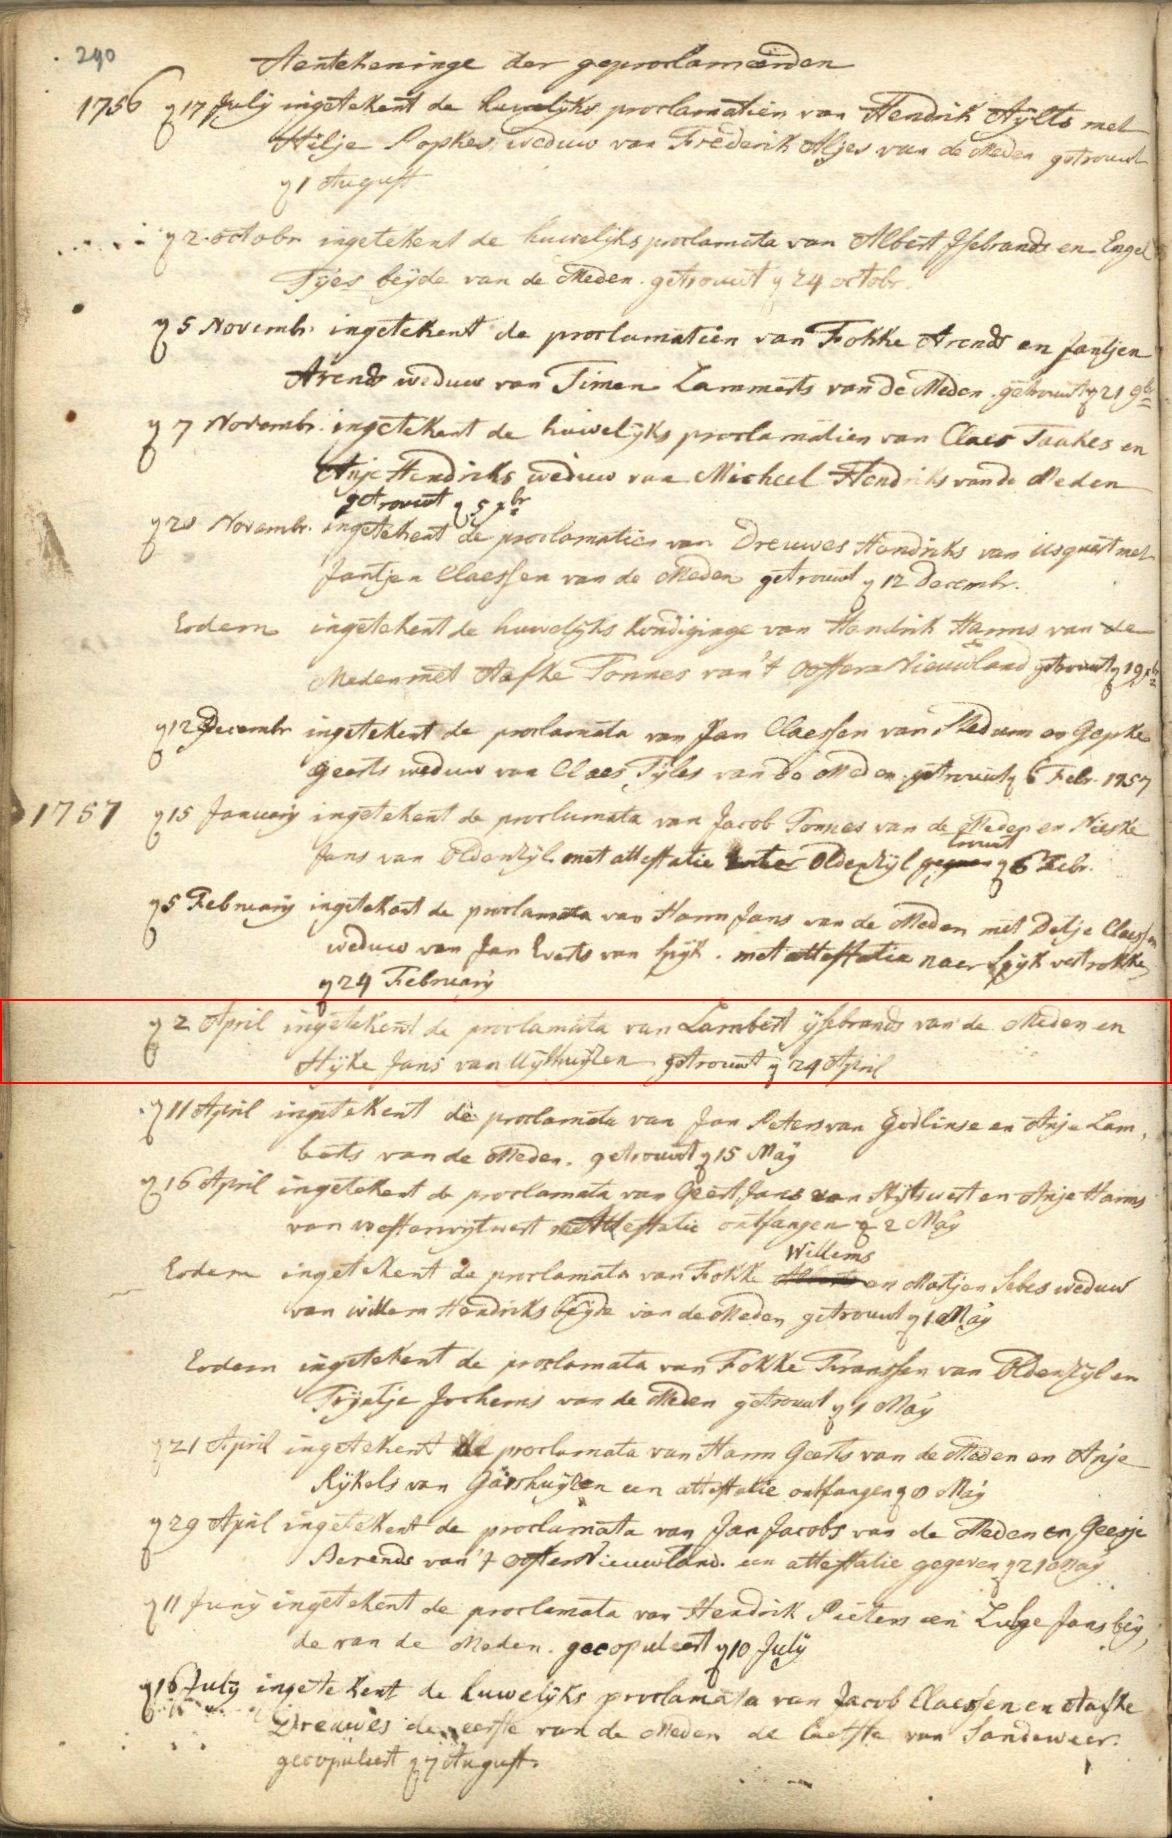 290
Aentekeninge der geproclameerden
1756 ÿ 17 Julÿ ingetekent de huwelijks proclamatien van Hendrik Aÿlts met
Hilje Popkes weduw van Frederik Aljes van de Meden getrouwt
ÿ 1 August
ÿ 2 octobr ingetekent de huwelijks proclamata van Albert Jsebrands en Engel
Tÿes beÿde van de Meden. getrouwt ÿ 24 octobr.
ÿ 5 Novembr. ingetekent de proclamatien van Fokke Arends en Jantjen
Arends weduw van Timen Lammerts van de Meden. getrouwt ÿ 21 9br
ÿ 7 Novembr. ingetekent de huwelijks proclamatien van Claes Taakes en
Anje Hendriks weduw van Micheel Hendriks van de Meden
getrouwt ÿ 5 xbr
ÿ 20 Novembr. ingetekent de proclamatien van Dreuwes Hendriks van usquert met
Jantjen Claessen van de Meden getrouwt ÿ 12 Decembr.
Eodem ingetekent de huwelijks kondiginge van Hendrik Harms van de
Meden met Aafke Tonnes van 't Ooster Nieuwland getrouwt ÿ 19 xbr
ÿ 12 Decembr ingetekent de proclamata van Jan Claessen van Stedum en Gepke
Geerts weduw van Claes Tÿles van de Meden. getrouwt ÿ 6 Febr. 1757
1757 ÿ 15 Januarÿ ingetekent de proclamata van Jacob Tonnes van de Meden en Nieske
Jans van Oldenzÿl met attestatie Oldenzÿl trouwt ÿ 6 Febr.
ÿ 5 Februarÿ ingetekent de proclamata van Harm Jans van de Meden met Detje Claessen
weduw van Jan Everts van Spijk. met attestatie naer Spÿk vertrokken
ÿ 24 Februarÿ
ÿ 2 April ingetekent de proclamata van Lambert ÿsebrands van de Meden en
Hÿke Jans van Uÿthuÿzen getrouwt ÿ 24 April
ÿ 11 April ingetekent de proclamata van Jan Peters van Godlinse en Anje Lam,
berts van de Meden. getrouwt ÿ 15 Maÿ
ÿ 16 April ingetekent de proclamata van Geert Jans van Stÿtswert en Anje Harms
van westerwÿtwert met Attestatie ontfangen ÿ 2 Maÿ
Eodem ingetekent de proclamata van Fokke Willems en Martjen Sebes weduw
van willem Hendriks beÿde van de Meden getrouwt ÿ 1 Maÿ
Eodem ingetekent de proclamata van Fokke Franssen van Oldenzÿl en
Trÿntje Jochems van de Meden getrouwt ÿ 1 Maÿ
ÿ 21 April ingetekent de proclamata van Harm Geerts van de Meden en Anje
Rÿkels van Garshuÿzen een attestatie ontfangen ÿ 8 Maÿ
ÿ 29 April ingetekent de proclamata van Jan Jacobs van de Meden en Geesje
Berends van 't Ooster Nieuwland. een attestatie gegeven ÿ 21 Maÿ
ÿ 11 Junÿ ingetekent de proclamata van Hendrik Pieters en Lubge Jans beÿ,
de van de Meden. gecopuleert ÿ 10 Julÿ
ÿ 16 Julÿ ingetekent de huwelÿks proclamata van Jacob Claessen en Aafke
Dreuwes de eerste van de Meden de laetste van Sandeweer.
gecopuleert ÿ 7 August.